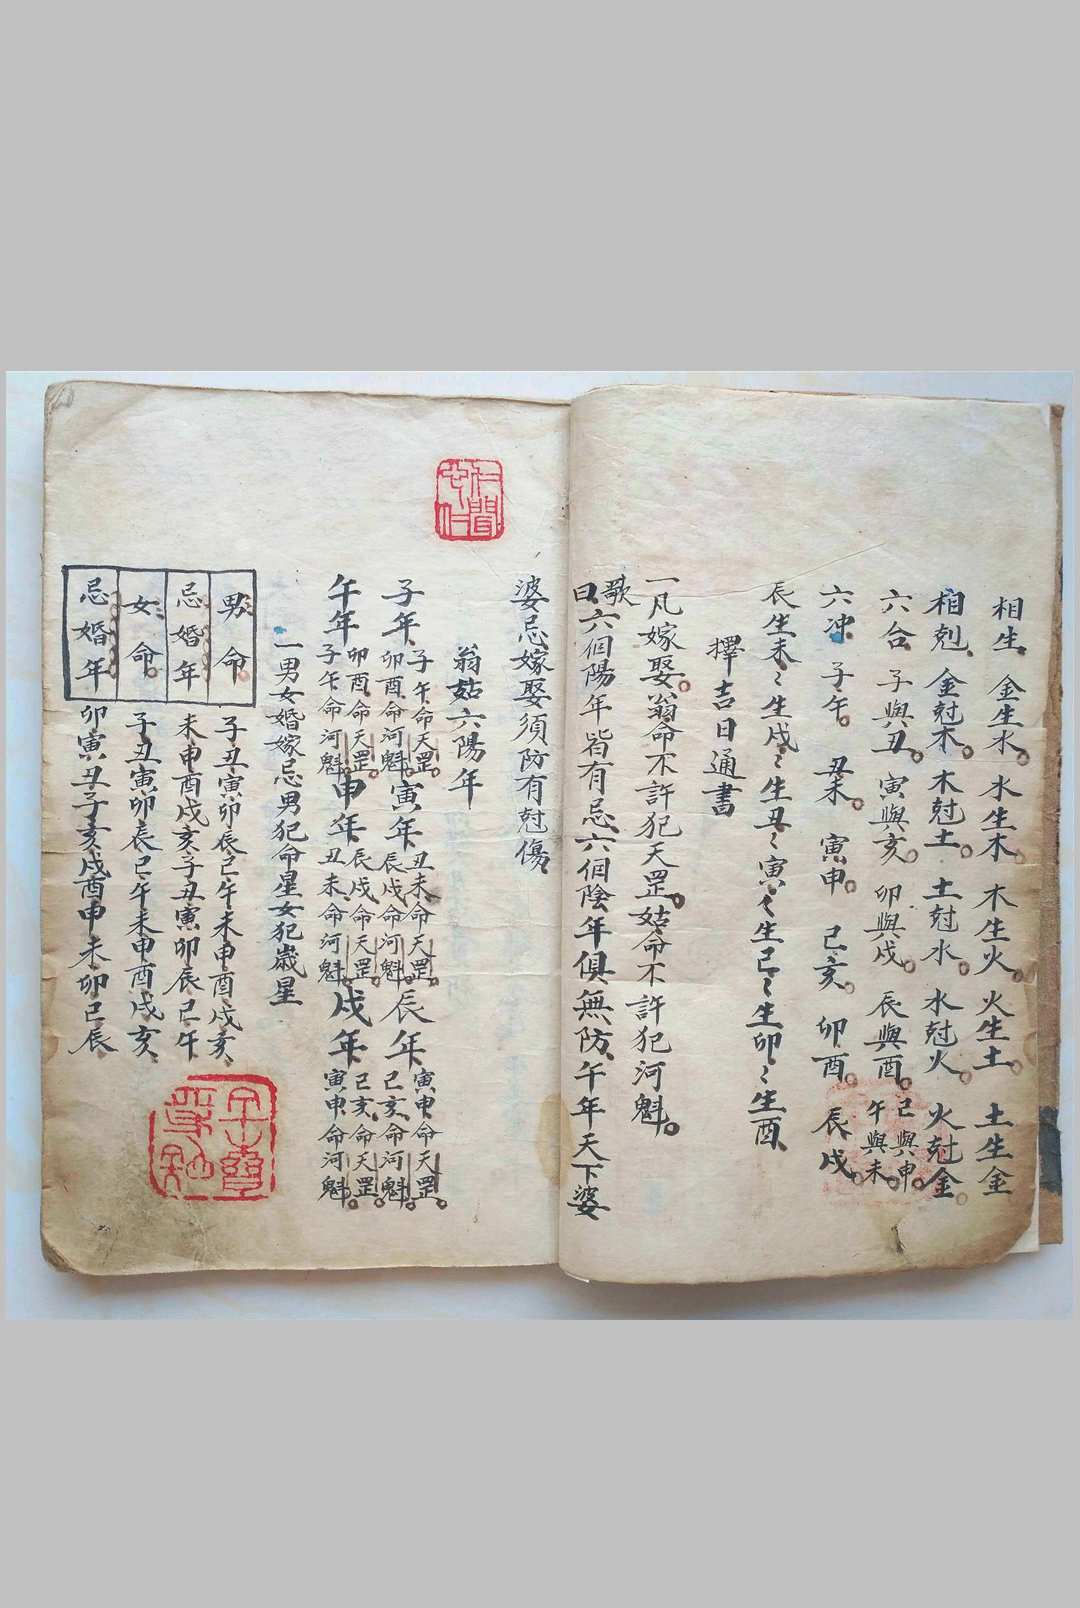 相生 金生水 水生木 木生火 火生土 土生金
相剋 金尅木 木尅土 土尅水 水尅火 火尅金
六合 子與丑 寅與亥 卯與戌 辰與酉 巳與申 午與未
六冲 子午 丑未 寅申 巳亥 卯酉 辰戌
辰生未〻生戌〻生丑〻寅〻生巳〻生卯〻生酉
擇吉日通書
一凡嫁娶翁命不許犯天罡姑命不許犯河魁
歌曰六個陽年皆有忌六個陰年俱無防午年天下婆
婆忌嫁娶須防有尅傷
翁姑六陽年
子年 子午命天罡 卯酉命河魁 寅年 丑未命天罡 辰戌命河魁 辰年 寅申命天罡 巳亥命河魁
午年 卯酉命天罡 子午命河魁 申年 辰戌命天罡 丑未命河魁 戌年 巳亥命天罡 寅申命河魁
一男女婚嫁忌男犯命星女犯歲星
男命 子丑寅卯辰巳午未申酉戌亥
忌婚年 未申酉戌亥子丑寅卯辰巳午
女命 子丑寅卯辰巳午未申酉戌亥
忌婚年 卯寅丑子亥戌酉申未卯巳辰